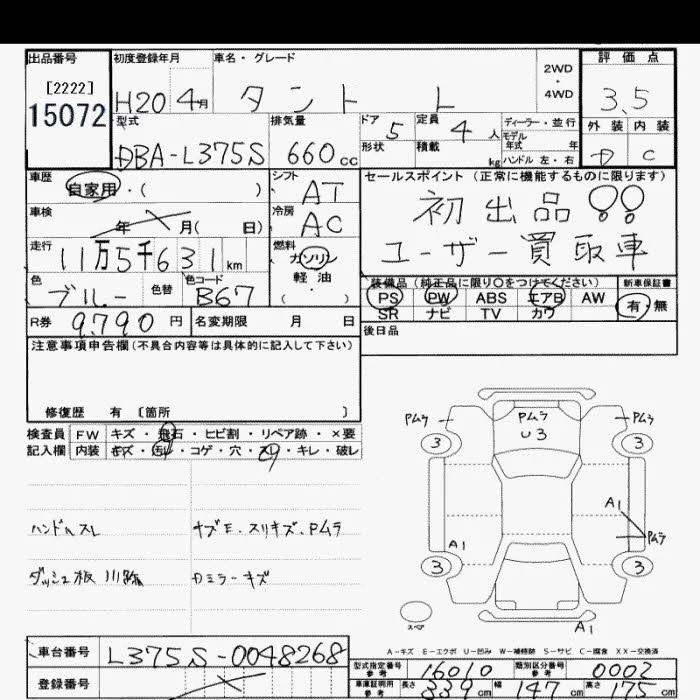 出品番号 初度登録年月 車名・グレード 2WD・4WD 評価点
[2222]
15072 H20 4月 タント L 3.5
型式 排気量 ドア 5 定員 4人 ディーラー・並行 外装 内装
DBA-L375S 660cc 形状 積載 kg モデル年式 年 ハンドル 左・右 D C
車歴 自家用・( ) シフト AT セールスポイント (正常に機能するものに限ります)
車検 年 月( 日) 冷房 AC 初出品!!
走行 11万5千631km 燃料 ガソリン ユーザー買取車
軽油
( )
色 ブルー 色替 色コード B67 装備品 (純正品に限り〇をつけてください) 新車保証書
PS PW ABS エアB AW 有・無
SR ナビ TV カワ
R券 9,790円 名変期限 月 日 後日品
注意事項申告欄 (不具合内容等は具体的に記入して下さい)
修復歴 有 [箇所 ]
検査員 FW キズ・飛石・ヒビ割・リペア跡・×要
記入欄 内装 キズ・汚れ・コゲ・穴・スレ・キレ・破レ
ハンドルスレ キズE、スリキズ、Pムラ
ダッシュ板 Dミラーキズ
Pムラ Pムラ Pムラ
U3
3 3
A1
A1 Pムラ
3 3
スペア
A1
A-キズ E-エクボ U-凹み W-補修跡 S-サビ C-腐食 XX-交換済
車台番号 L375S-0048268
登録番号
型式指定番号 参考 16010 類別区分番号 参考 0002
車庫証明用 参考 長さ 339cm 幅 147cm 高さ 175cm